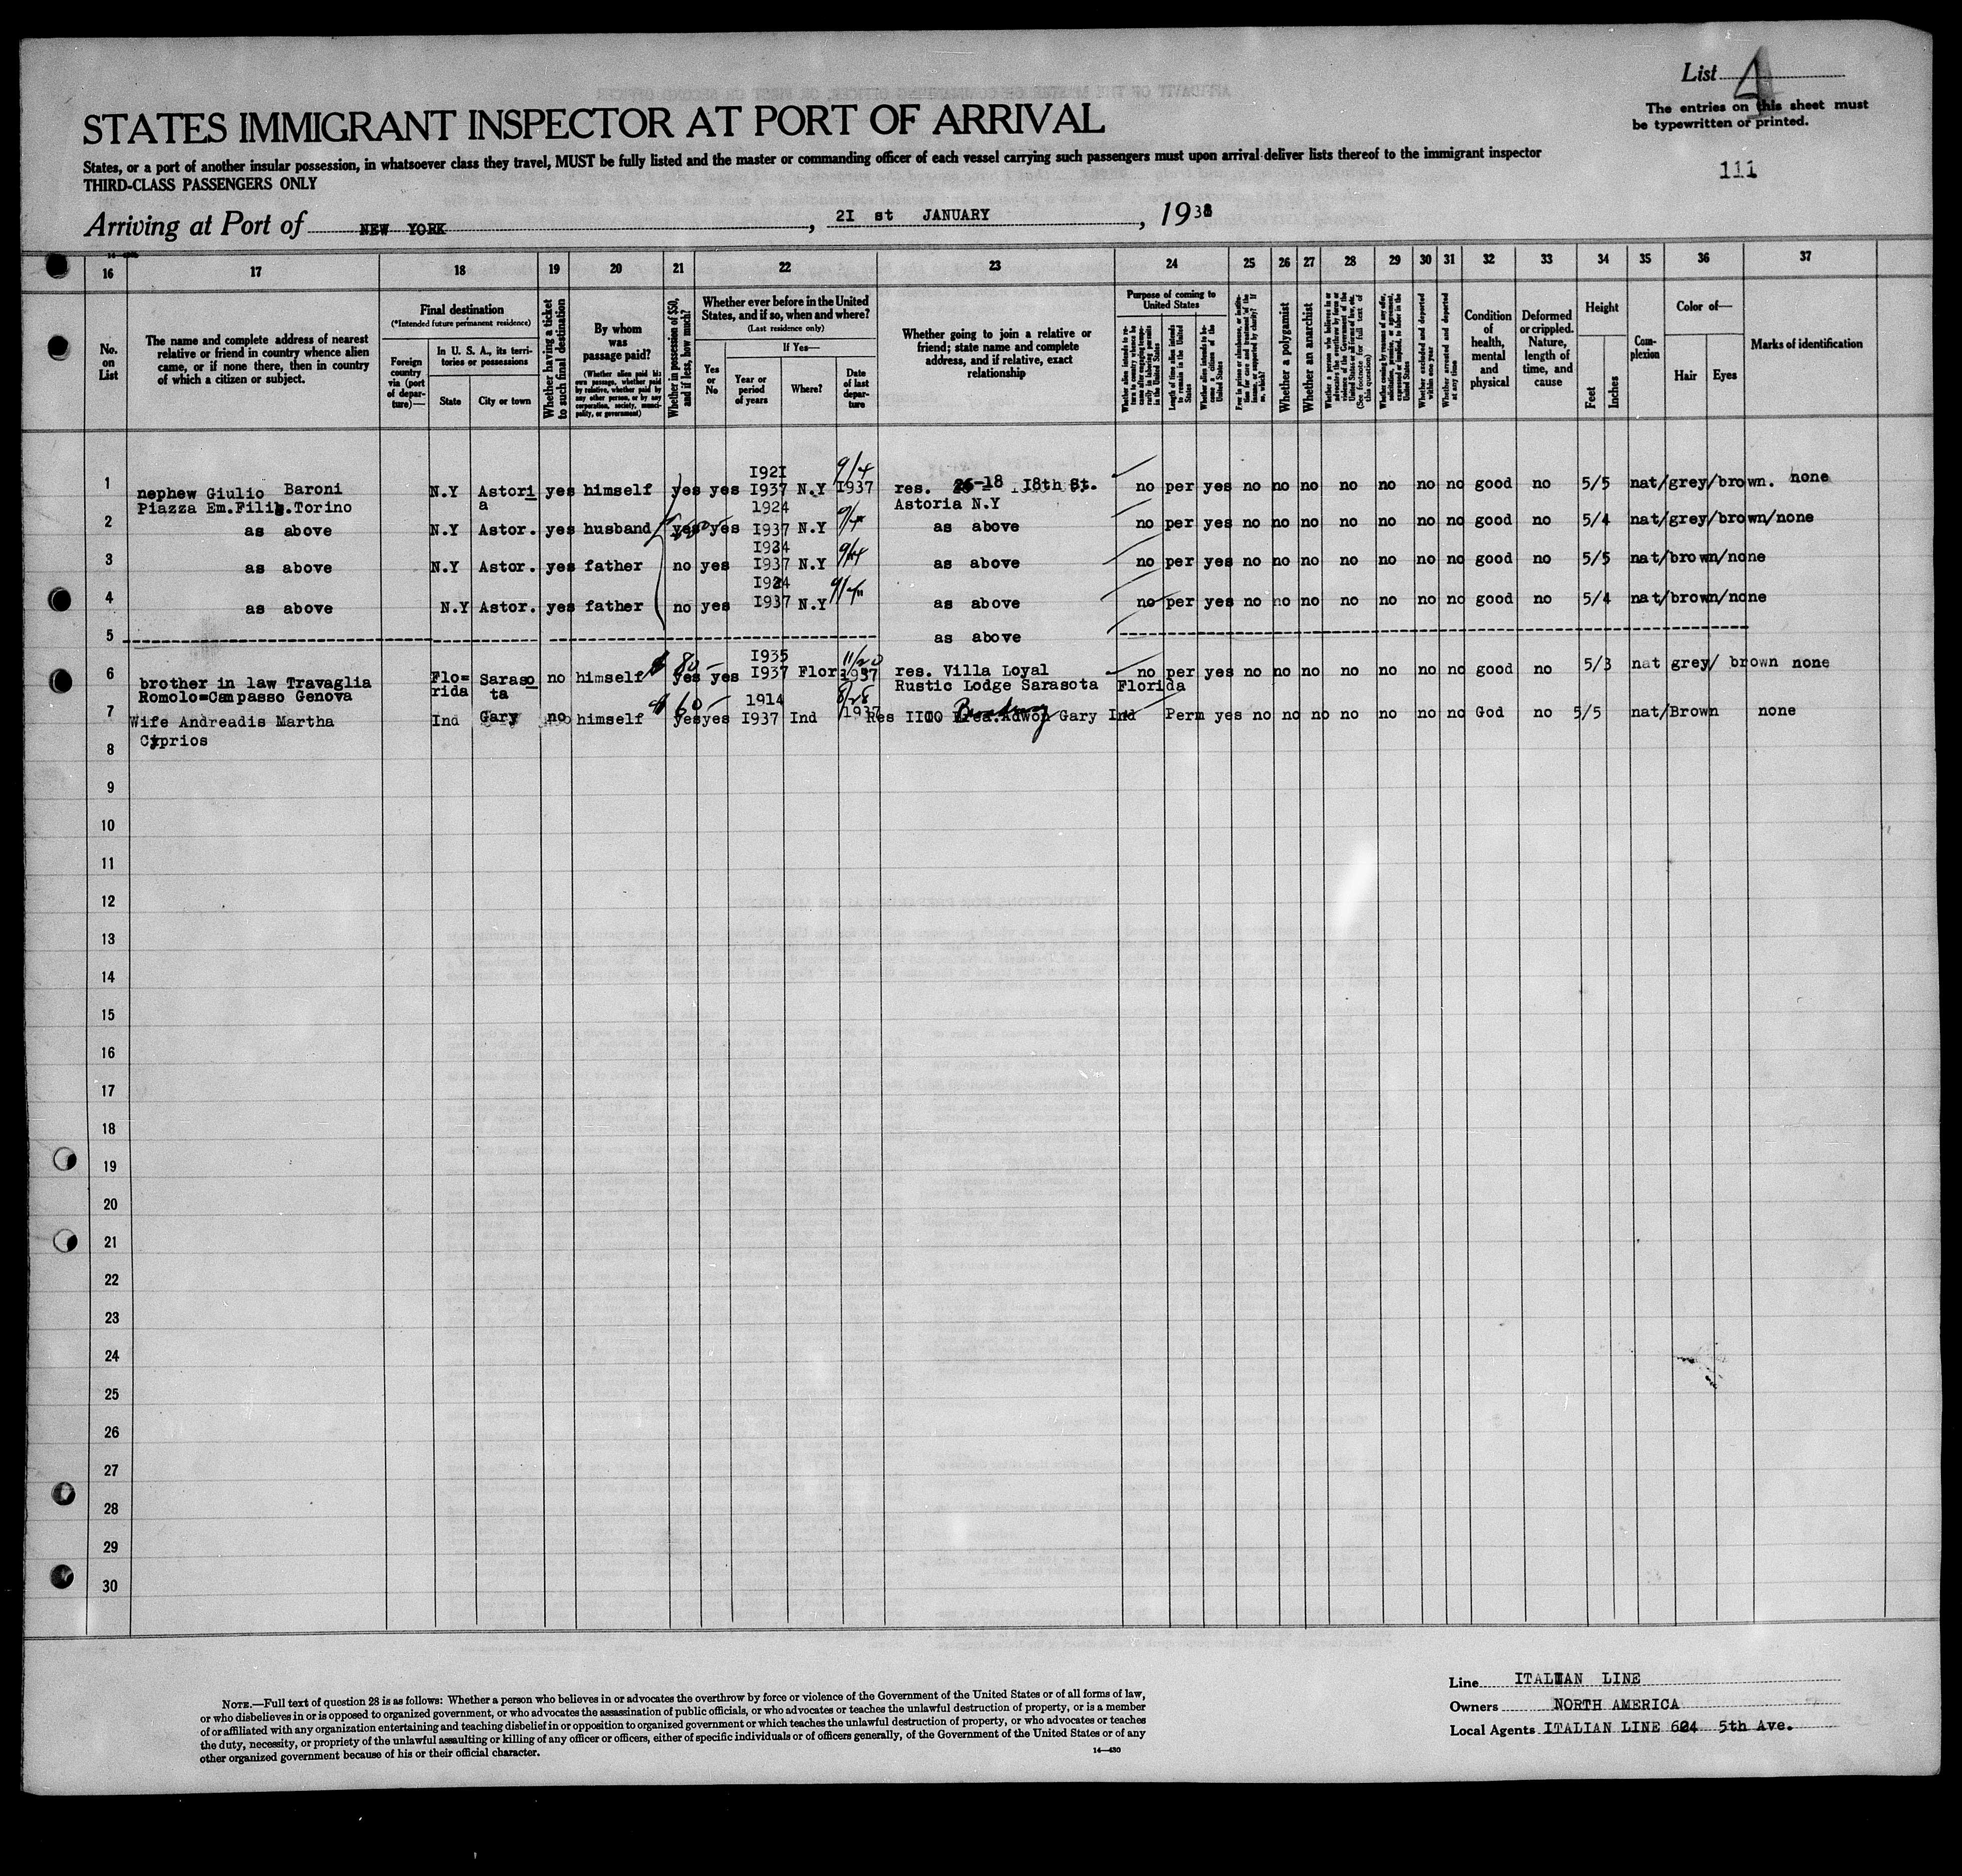 List 4
The entries on this sheet must
be typewritten or printed.
STATES IMMIGRANT INSPECTOR AT PORT OF ARRIVAL
States, or a port of another insular possession, in whatsoever class they travel, MUST be fully listed and the master or commanding officer of each vessel carrying such passengers must upon arrival deliver lists thereof to the immigrant inspector
THIRD-CLASS PASSENGERS ONLY
111
Arriving at Port of NEW YORK, 2I st JANUARY, 1938
16 17 18 19 20 21 22 23 24 25 26 27 28 29 30 31 32 33 34 35 36 37
No. on List
The name and complete address of nearest relative or friend in country whence alien came, or if none there, then in country of which a citizen or subject.
Final destination
(*Intended future permanent residence)
Foreign country via (port of departure)—
In U. S. A., its territories or possessions
State
City or town
Whether having a ticket to such final destination
By whom was passage paid?
(Whether alien paid his own passage, whether paid by relative, whether paid by any other person, or by any corporation, society, municipality, or government)
Whether in possession of $50, and if less, how much?
Whether ever before in the United States, and if so, when and where?
(Last residence only)
Yes or No
If Yes—
Year or period of years
Where?
Date of last departure
Whether going to join a relative or friend; state name and complete address, and if relative, exact relationship
Purpose of coming to United States
Length of time alien intends to remain in the United States
Whether alien intends to become a citizen of the United States
Whether a polygamist
Whether an anarchist
(See footnote for full text of this question)
Whether excluded and deported within one year
Whether arrested and deported at any time
Condition of health, mental and physical
Deformed or crippled. Nature, length of time, and cause
Height
Feet
Inches
Complexion
Color of—
Hair
Eyes
Marks of identification
1 nephew Giulio Baroni N.Y Astori yes himself yes yes I92I I937 N.Y 9/4 I937 res. 26-18 I8th St. no per yes no no no no no no no good no 5/5 nat/grey/brown. none
Piazza Em.Filib.Torino a Astoria N.Y
2 as above N.Y Astor. yes husband yes yes 1924 I937 N.Y as above no per yes no no no no no no no good no 5/4 nat/grey/brown/none
3 as above N.Y Astor. yes father no yes I924 I937 N.Y 9/4 as above no per yes no no no no no no no good no 5/5 nat/brown/none
4 as above N.Y Astor. yes father no yes I924 I937 N.Y as above no per yes no no no no no no no good no 5/4 nat/brown/none
5 as above
6 brother in law Travaglia Flo= Saraso no himself $ 80 – yes yes I935 I937 Flor 11/20 1937 res. Villa Loyal no per yes no no no no no no no good no 5/3 nat grey/ brown none
Romolo=Campasso Genova rida ta Rustic Lodge Sarasota Florida
7 Wife Andreadis Martha Ind Gary no himself $ 60 – yes yes 1914 I937 Ind 8/28 1937 Res III0 Broadway Gary Ind Perm yes no no no no no no no God no 5/5 nat/Brown none
Cyprios
8
9
10
11
12
13
14
15
16
17
18
19
20
21
22
23
24
25
26
27
28
29
30
NOTE.—Full text of question 28 is as follows: Whether a person who believes in or advocates the overthrow by force or violence of the Government of the United States or of all forms of law,
or who disbelieves in or is opposed to organized government, or who advocates the assassination of public officials, or who advocates or teaches the unlawful destruction of property, or is a member
of or affiliated with any organization entertaining and teaching disbelief in or opposition to organized government or which teaches the unlawful destruction of property, or who advocates or teaches
the duty, necessity, or propriety of the unlawful assaulting or killing of any officer or officers, either of specific individuals or of officers generally, of the Government of the United States or of any
other organized government because of his or their official character.
14—430
Line ITALIAN LINE
Owners NORTH AMERICA
Local Agents ITALIAN LINE 624 5th Ave.